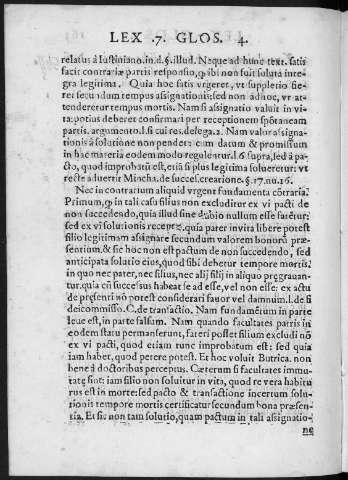 LEX .7. GLOS. 4.
relatus à Iustiniano.in.d.§.illud. Neque ad hunc text. satis
facit contrariæ partis responsio, ꝙ ibi non fuit soluta inte-
gra legitima. Quia hoc satis vrgeret, vt suppletio fie-
ret secundum tempus assignationis, sed non ad hoc, vt at-
tenderetur tempus mortis. Nam si assignatio valuit in vi-
ta: potius deberet confirmari per receptionem spōtaneam
partis. argumento.l.si cui res.delega.2. Nam valor assigna-
tionis à solutione non pendet: cum datum & promissum
in hac materia eodem modo regulentur.l.6 supra, sed à pa-
cto, quod improbatū est, etiā si plus legitima solueretur: vt
recte aduertit Mincha. de succes.creatione.§.17.nu.16.
Nec in contrarium aliquid vrgent fundamenta cōtraria.
Primum, ꝙ in tali casu filius non excluditur ex vi pacti de
non succedendo, quia illud sine dubio nullum esse fatētur:
sed ex vi solutionis receptę. quia pater in vita libere potest
filio legitimam assignare secundum valorem bonorū præ-
sentium, & sic hoc non est pactum de non succedendo, sed
anticipata solutio eius, quod sibi debetur tempore mortis.
in quo nec pater, nec filius, nec alij filij in aliquo pręgrauan-
tur. quia cū successus habeat se ad esse, vel non esse: ex actu
de pręsenti nō potest considerari fauor vel damnum.l.de fi
deicommisso.C.de transactio. Nam fundamētum in parte
leue est, in parte falsum. Nam quando facultates patris in
eodem statu permanserunt, fateri posset filium excludi nō
ex vi pacti, quod etiam tunc improbatum est: sed quia
iam habet, quod petere potest. Et hoc voluit Butrica. non
bene à doctoribus perceptus. Cæterum si facultates immu-
tatę sint: iam filio non soluitur in vita, quod re vera habitu
rus est in morte: sed pacto & transactione incertum solu-
tionis tempore mortis certificatur secundum bona præsen-
tia. Et sic non tam solutio, quam pactum in tali assignatio-
ne